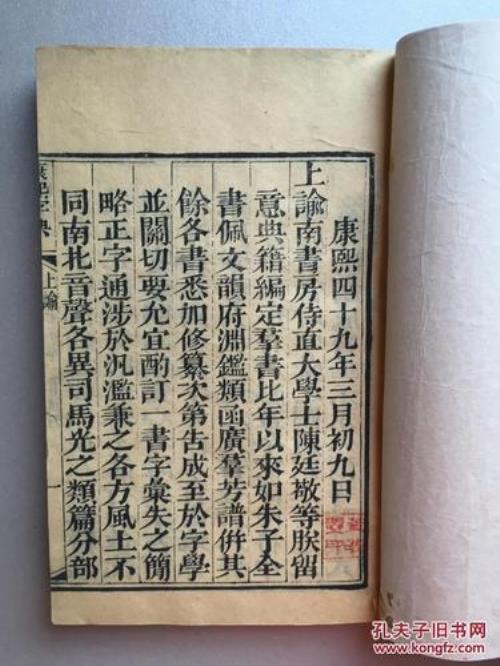 康熙四十九年三月初九日
上諭南書房侍直大學士陳廷敬等朕留
意典籍編定羣書比年以來如朱子全
書佩文韻府淵鑑類函廣羣芳譜併其
餘各書悉加修纂次第告成至於字學
並關切要允宜酌訂一書字彙失之簡
略正字通涉於汎濫兼之各方風土不
同南北音聲各異司馬光之類篇分部
康熙字典
上諭
一
孔夫子旧书网
www.kongfz.com